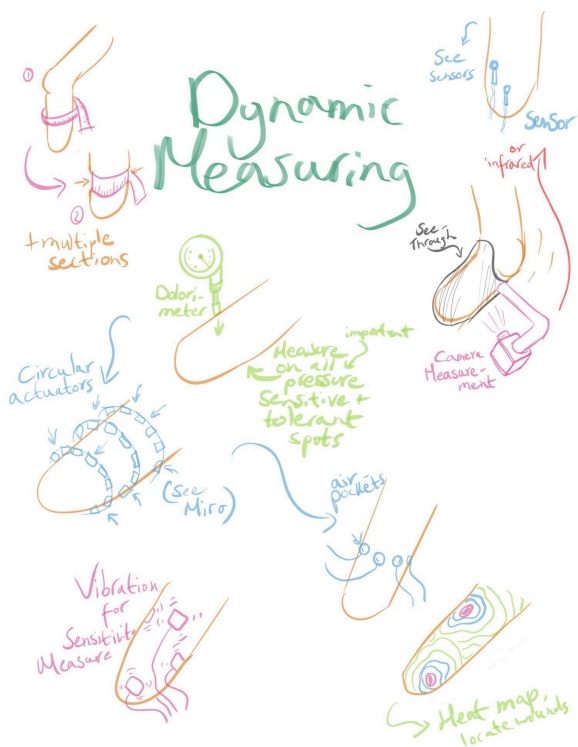 Dynamic
Measuring
①
②
+ multiple
sections
See
Sensors
Sensor
or
infrared
See
Through
Camera
Measure-
ment
Dolori-
meter
important
Measure
on all
pressure
sensitive +
tolerant
spots
Circular
actuators
(see
Miro)
air
pockets
Vibration
for
Sensitivity
Measure
Heat map,
locate wounds